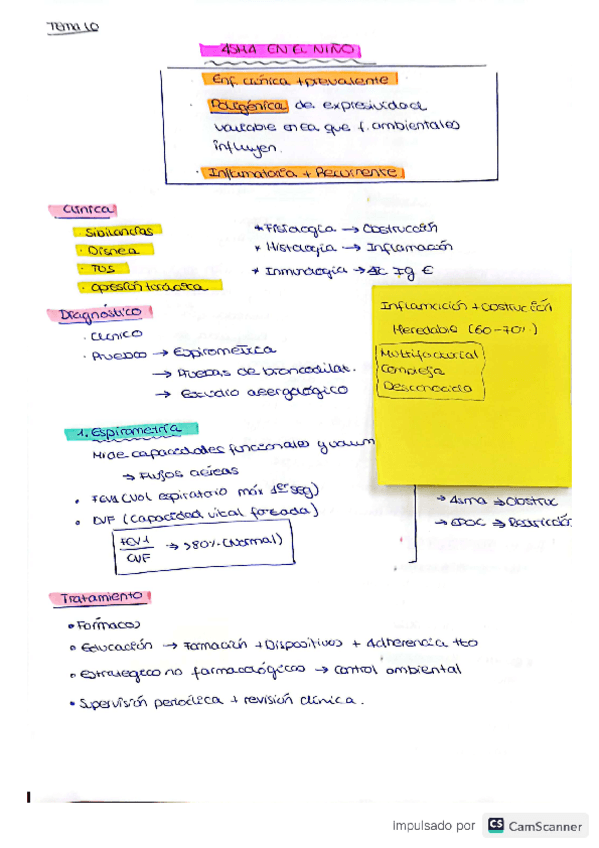 TEMA 10
ASMA EN EL NIÑO
· Enf. crónica + prevalente
· Poligénica de expresividad
variable en la que f. ambientales
influyen.
· Inflamatoria + Recurrente
Clínica
· Sibilancias
· Disnea
· TOS
· opresión torácica
* Fisiología → Obstrucción
* Histología → Inflamación
* Inmunología → Ig E
Diagnóstico
· Clínico
· Pruebas → Espirometría
→ Pruebas de broncodilat.
→ Estudio alergológico
Inflamación + Obstrucción
Heredable (60-70%)
Multifactorial
Compleja
Desconocida
1. Espirometría
Mide capacidades funcionales y volum
→ Flujos aéreos
• FEV1 (Vol espiratorio máx 1er seg)
• CVF (capacidad vital forzada)
FEV1
CVF
→ >80% (Normal)
→ Asma → Obstruc
→ EPOC → Restricción
Tratamiento
• Fármacos
• Educación → Formación + Dispositivos + Adherencia tto
• Estrategias no farmacológicas → Control ambiental
• Supervisión periódica + revisión clínica.
Impulsado por CS CamScanner